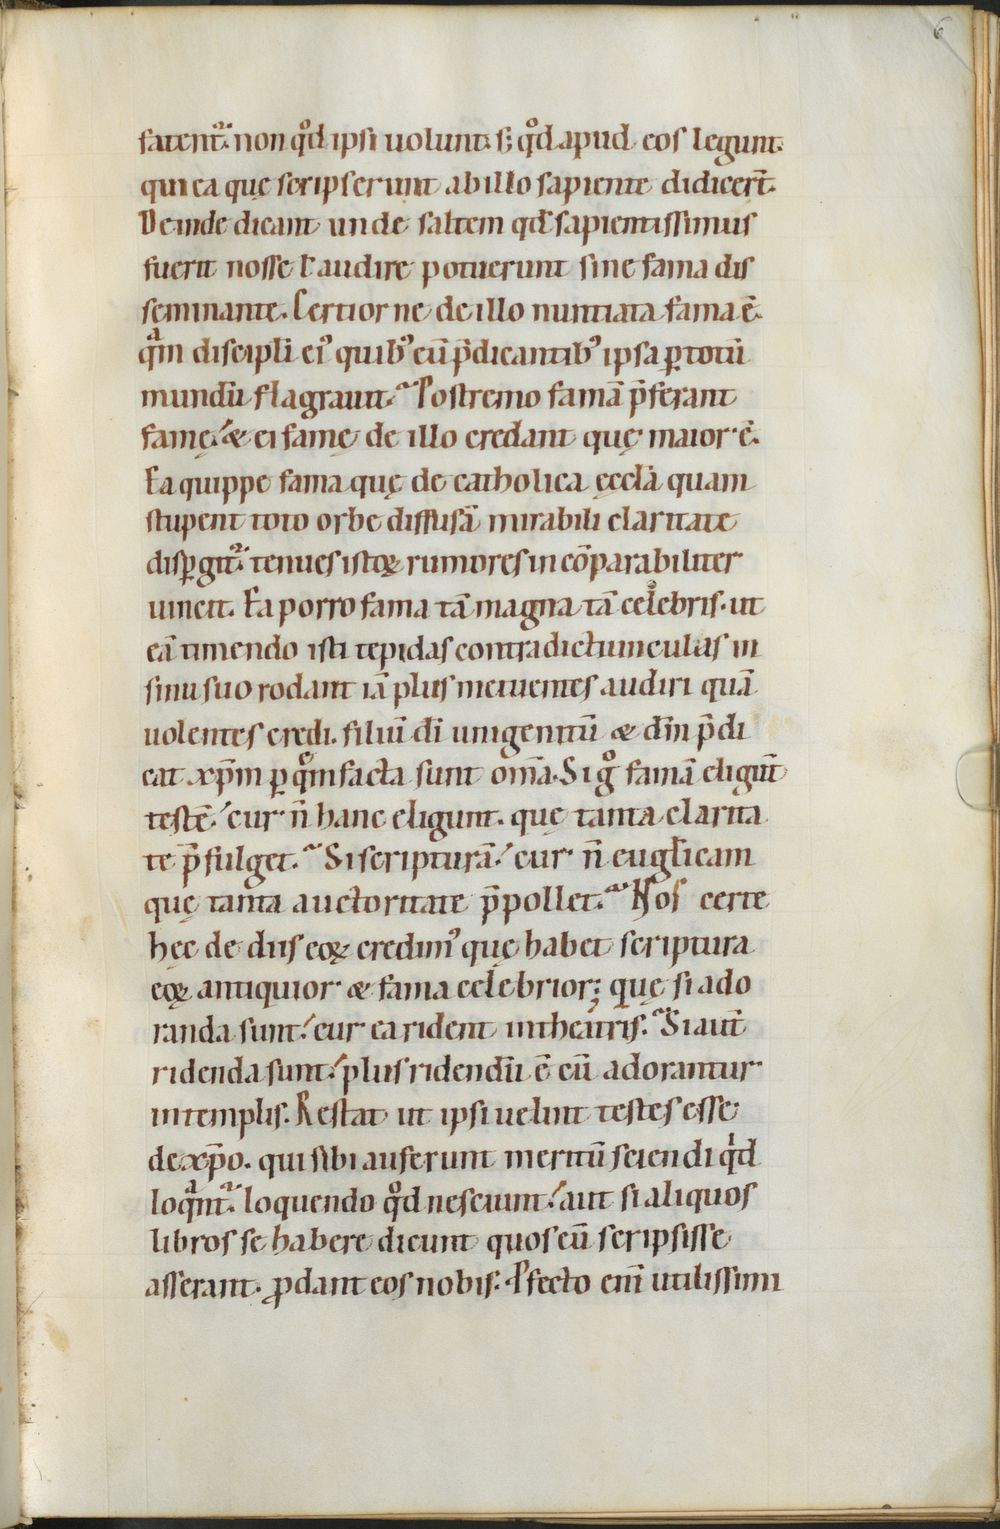 6
fatent᷑. non qͦd ipsi uolunt. s; qͦd apud eos legunt.
qui ea quę scripserunt ab illo sapiente didicer̄t.
Deinde dicant unde saltem qd̄ sapientissimus
fuerit nosse ł audire potuerunt sine fama dis
seminante. Certior ne de illo nuntiata fama ē.
qͣm discipli eiꝰ quibꝰ eū p̄dicantibꝰ ipsa ꝑ totū
mundū flagrauit. Postremo famā p̄ferant
famę. & ei famę de illo credant quę maior ē.
Ea quippe fama quę de catholica ęccl̄a quam
stupent toto orbe diffusā mirabili claritate
disꝑgit᷑. tenues istoꝝ rumores incōparabiliter
uincit. Ea porro fama tā magna tā celebris. ut
eā timendo isti tepidas contradictiunculas in
sinu suo rodant iā plus metuentes audiri quā
uolentes credi. filiū dī unigenitū & dm̄ p̄di
cat xp̄m ꝑ qͤm facta sunt om̄a. Si gͦ famā eligūt
testē. cur n̄ hanc eligunt. quę tanta clarita
te p̄fulget. Si scripturā. cur n̄ euglīcam
quę tanta auctoritate p̄pollet. Nos certe
hęc de diis eoꝝ credimꝰ quę habet scriptura
eoꝝ antiquior & fama celebrior; quę si ado
randa sunt. cur ea rident in theatris. Si aut̄
ridenda sunt. plus ridendū ē cū adorantur
in templis. Restat ut ipsi uelint testes esse
de xp̄o. qui sibi auferunt meritū sciendi qͥd
loqͣnt᷑. loquendo qͦd nesciunt. aut si aliquos
libros se habere dicunt quos eū scripsisse
asserant. ꝓdant eos nobis. Pfecto enī utilissimi